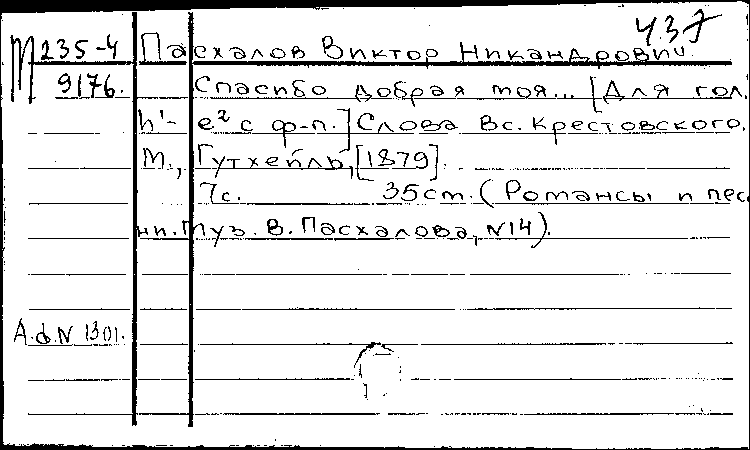 Ч.З.7
М 235-4 Пасхалов Виктор Никандрович.
9176. Спасибо добрая моя... [Для гол.
h'- e² с ф-п.] Слова Вс. Крестовского.
М., Гутхейль, [1879].
7с. 35cm. (Романсы и пес-
ни. Муз. В. Пасхалова, N14).
А.ф.N 1301.